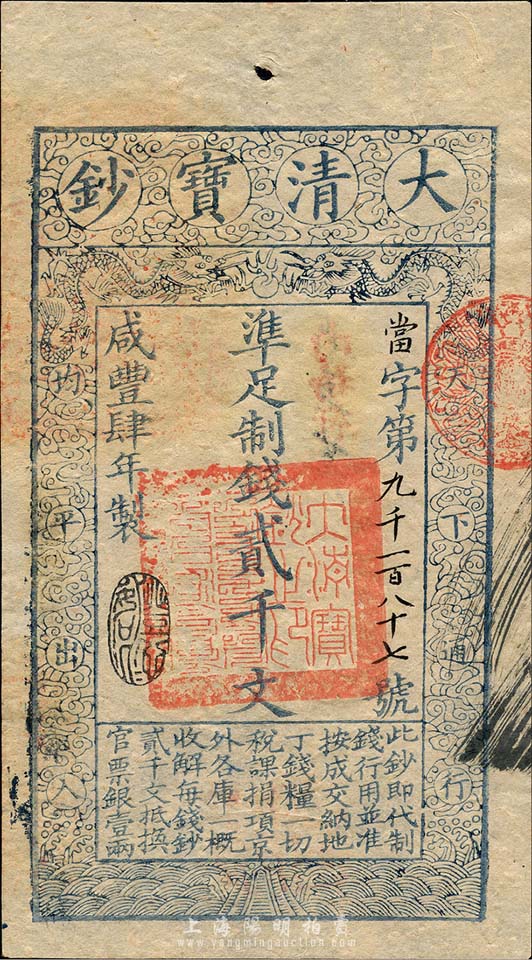 大清寶鈔
當字第九千一百八十七號
準足制錢貳千文
咸豐肆年製
天下通行
均平出入
此鈔即代制
錢行用並准
按成交納地
丁錢糧一切
稅課捐項京
外各庫一概
收解每錢鈔
貳千文抵換
官票銀壹兩
大清寶
上海陽明拍賣
www.yangmingauction.com